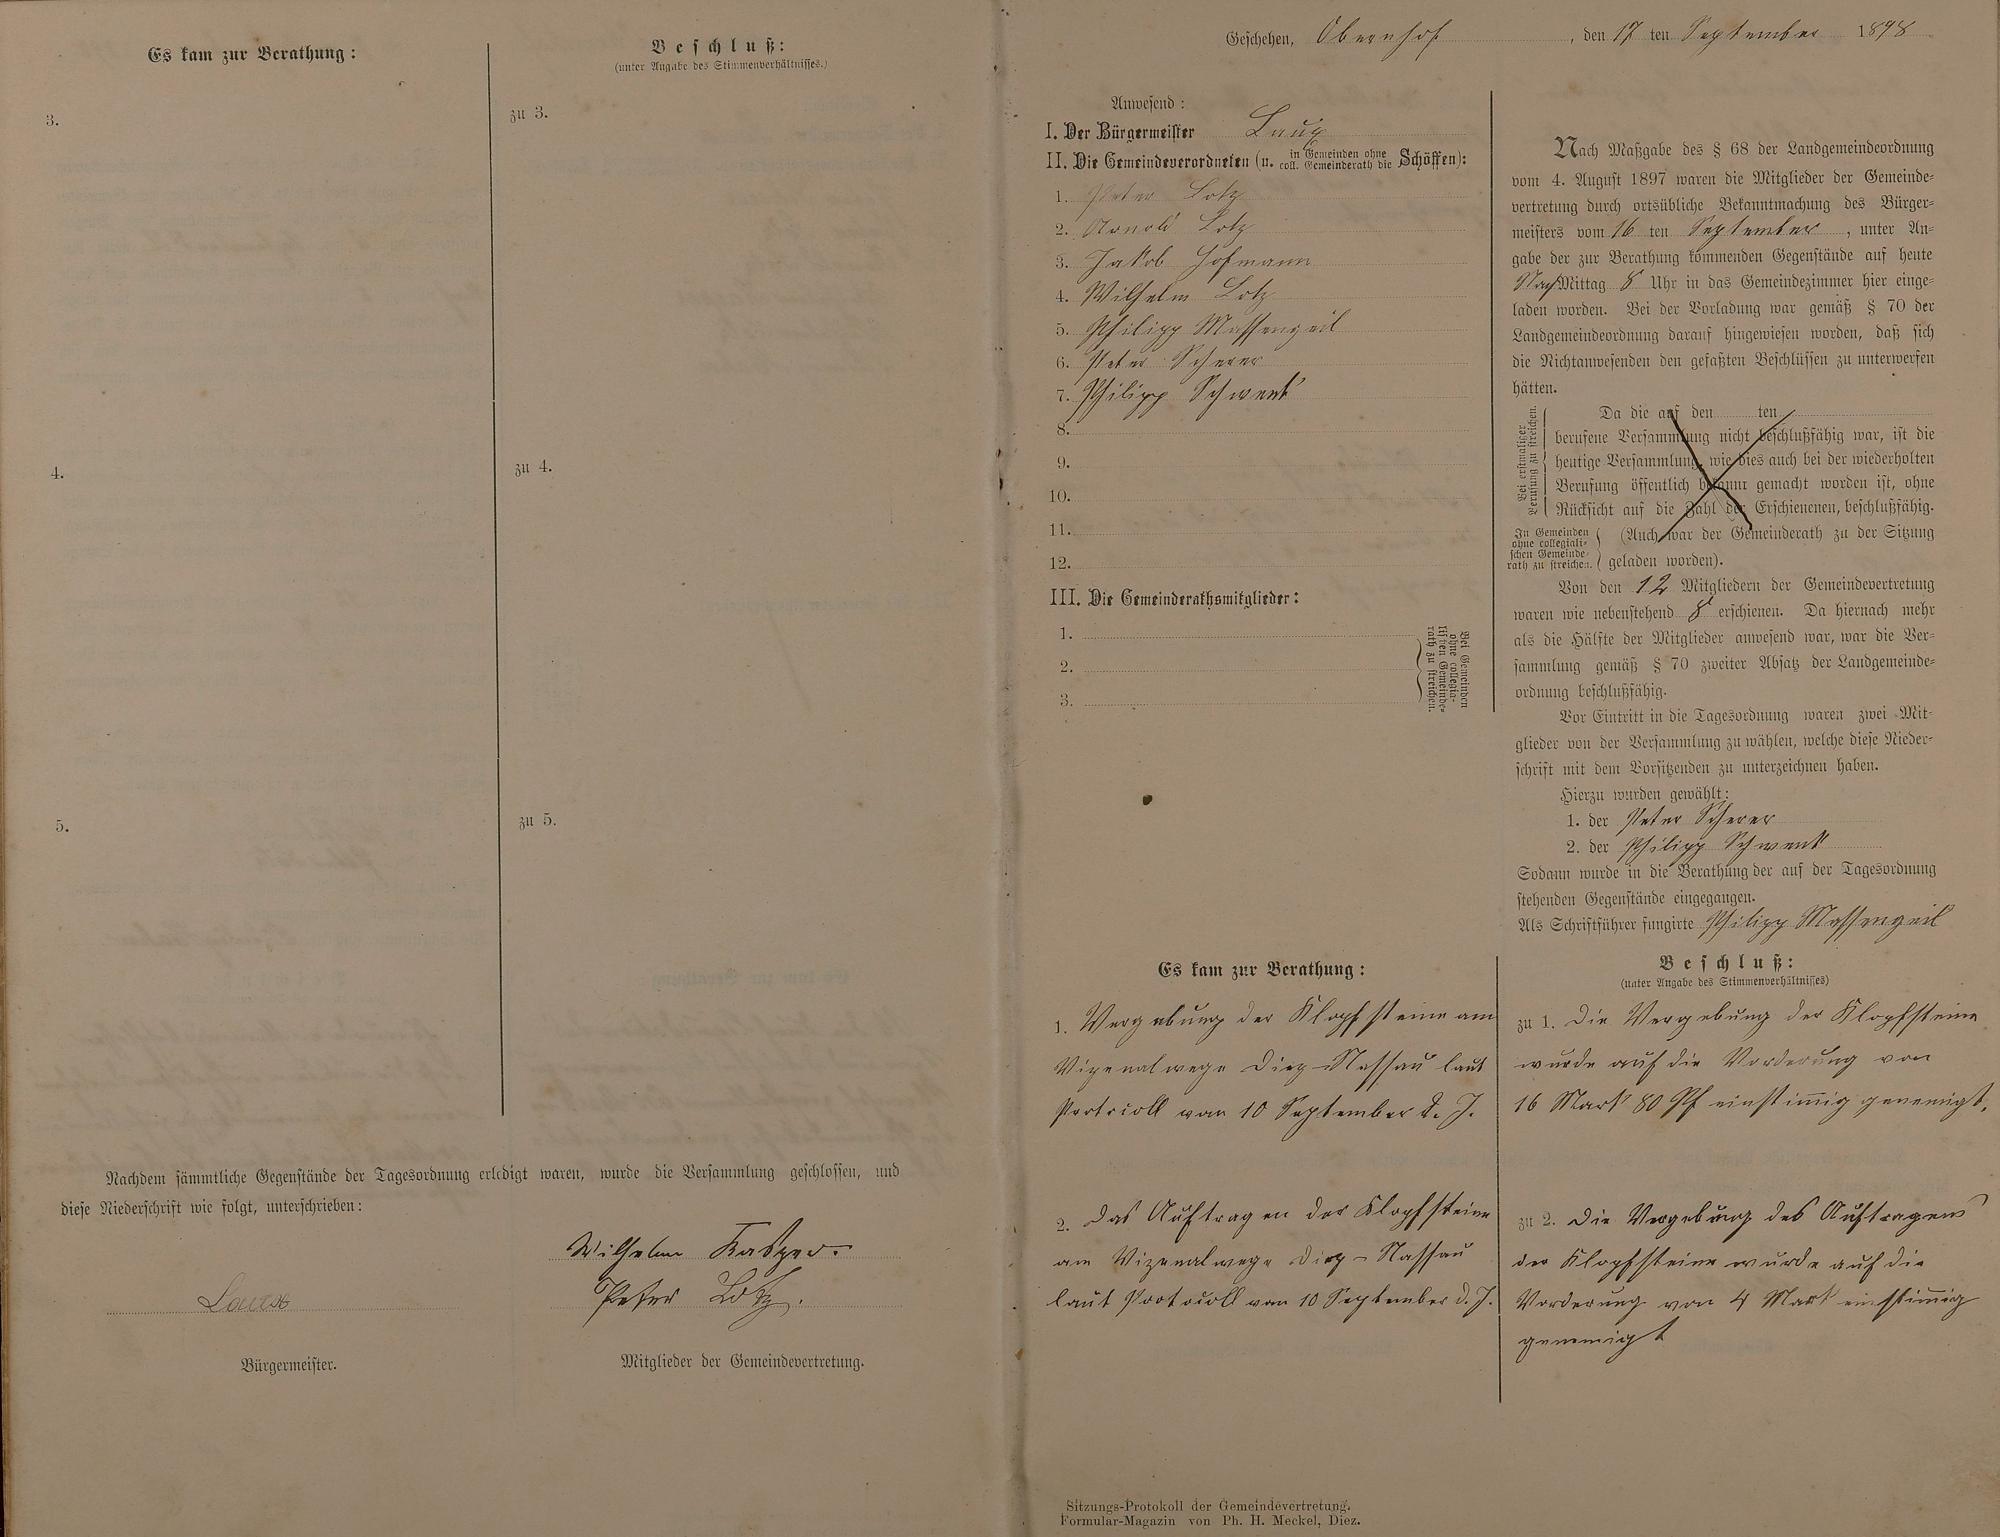 Es kam zur Berathung:
Beschluß:
(unter Angabe des Stimmenverhältnisses.)
3.
zu 3.
4.
zu 4.
5.
zu 5.
Nachdem sämmtliche Gegenstände der Tagesordnung erledigt waren, wurde die Versammlung geschlossen, und
diese Niederschrift wie folgt, unterschrieben:
Wilhelm Kasper.
Peter Lotz.
Bürgermeister.
Mitglieder der Gemeindevertretung.
Geschehen, Obernhof, den 17 ten September 1898
Anwesend:
I. Der Bürgermeister
II. Die Gemeindeverordneten (u. in Gemeinden ohne coll. Gemeinderath die Schöffen):
1. Peter Lotz
2. Arnold Lotz
3. Jakob Hofmann
4. Wilhelm Lotz
5. Philipp Massengeil
6. Peter Scherer
7. Philipp Schwenk
8.
9.
10.
11.
12.
III. Die Gemeinderathsmitglieder:
1.
2.
3.
Bei Gemeinden
ohne collegia-
lischen Gemeinde-
rath zu streichen.
Nach Maßgabe des § 68 der Landgemeindeordnung
vom 4. August 1897 waren die Mitglieder der Gemeinde-
vertretung durch ortsübliche Bekanntmachung des Bürger-
meisters vom 16 ten September, unter An-
gabe der zur Berathung kommenden Gegenstände auf heute
NachMittag 8 Uhr in das Gemeindezimmer hier einge-
laden worden. Bei der Vorladung war gemäß § 70 der
Landgemeindeordnung darauf hingewiesen worden, daß sich
die Nichtanwesenden den gefaßten Beschlüssen zu unterwerfen
hätten.
Bei erstmaliger
Berufung zu streichen.
Da die auf den ten
berufene Versammlung nicht beschlußfähig war, ist die
heutige Versammlung, wie dies auch bei der wiederholten
Berufung öffentlich bekannt gemacht worden ist, ohne
Rücksicht auf die Zahl der Erschienenen, beschlußfähig.
In Gemeinden
ohne collegiali-
schen Gemeinde-
rath zu streichen.
(Auch war der Gemeinderath zu der Sitzung
geladen worden).
Von den 12 Mitgliedern der Gemeindevertretung
waren wie nebenstehend 8 erschienen. Da hiernach mehr
als die Hälfte der Mitglieder anwesend war, war die Ver-
sammlung gemäß § 70 zweiter Absatz der Landgemeinde-
ordnung beschlußfähig.
Vor Eintritt in die Tagesordnung waren zwei Mit-
glieder von der Versammlung zu wählen, welche diese Nieder-
schrift mit dem Vorsitzenden zu unterzeichnen haben.
Hierzu wurden gewählt:
1. der Peter Scherer
2. der Philipp Schwenk
Sodann wurde in die Berathung der auf der Tagesordnung
stehenden Gegenstände eingegangen.
Als Schriftführer fungirte Philipp Massengeil
Es kam zur Berathung:
1. Vergebung der Klopfsteine am
Vizenalwege Diez-Nassau laut
Protcoll vom 10 September d. J.
2. Das Auftragen der Klopfsteine
am Vizenalwege Diez-Nassau
laut Protocoll vom 10 September d. J.
Beschluß:
(unter Angabe des Stimmenverhältnisses)
zu 1. Die Vergebung der Klopfsteine
wurde auf die Vorderung von
16 Mark 80 Pf einstimig genemigt.
zu 2. Die Vergebung des Auftragens
der Klopfsteine wurde auf die
Vorderung von 4 Mark einstimig
genemigt
Sitzungs-Protokoll der Gemeindevertretung.
Formular-Magazin von Ph. H. Meckel, Diez.